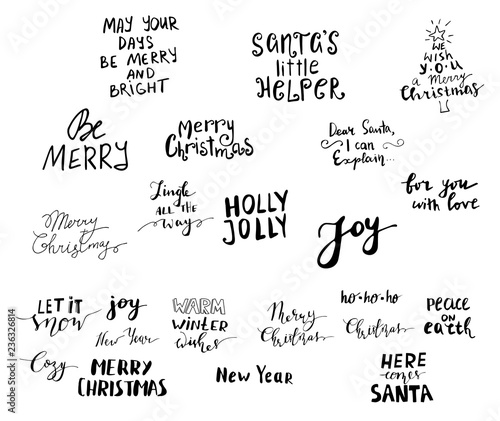 MAY YOUR
DAYS
BE MERRY
AND
BRIGHT
SANTA'S
little
HELPER
WE
WISH
YOU
a Merry
Christmas
Be
MERRY
Merry
Christmas
Dear Santa,
I can
Explain...
for you
with love
Merry
Christmas
Jingle
ALL THE
way
HOLLY
JOLLY
Joy
LET IT
snow
joy
New Year
WARM
WINTER
wishes
Merry
Christmas
ho·ho·ho
Christmas
PEACE
ON
earth
Cozy
MERRY
CHRISTMAS
New Year
HERE
comes
SANTA
Adobe Stock | #236326814